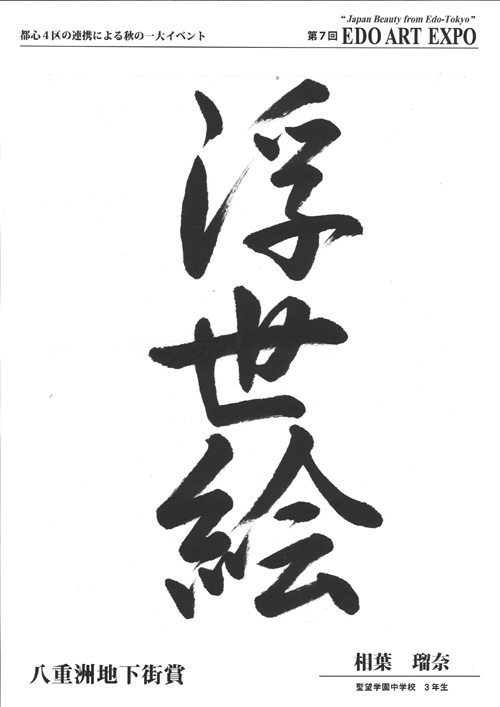 "Japan Beauty from Edo-Tokyo"
都心4区の連携による秋の一大イベント
第7回 EDO ART EXPO
浮世絵
八重洲地下街賞
相葉 瑠奈
聖望学園中学校 3年生